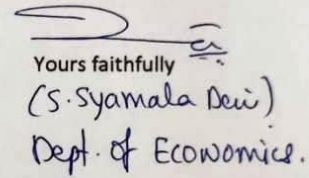 Yours faithfully
(S. Syamala Devi)
Dept. of Economics.